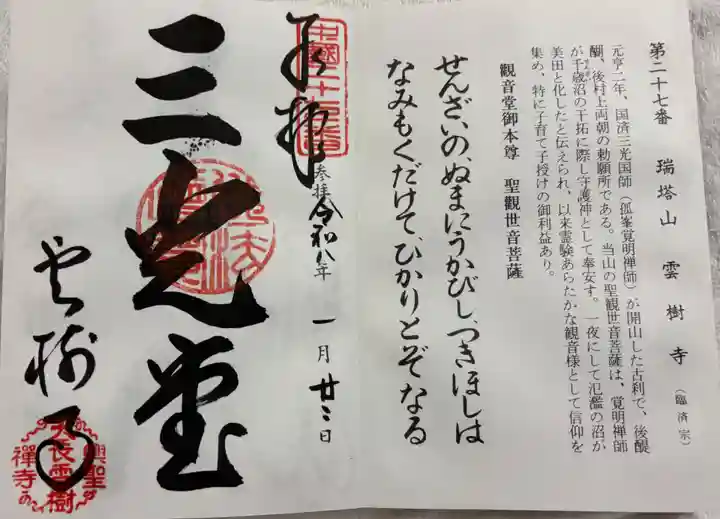 第二十七番　瑞塔山　雲樹寺（臨済宗）
元亨二年、国済三光国師（孤峯覚明禅師）が開山した古刹で、後醍
醐、後村上両朝の勅願所である。当山の聖観世音菩薩は、覚明禅師
が千歳沼の干拓に際し守護神として奉安す。一夜にして氾濫の沼が
美田と化したと伝えられ、以来霊験あらたかな観音様として信仰を
集め、特に子育て子授けの御利益あり。
観音堂御本尊　聖觀世音菩薩
せんざいの、ぬまにうかびし、つきほしは
なみもくだけて、ひかりとぞなる
奉拝
参拝 令和八年 一月 廿二日
三光堂
雲樹寺